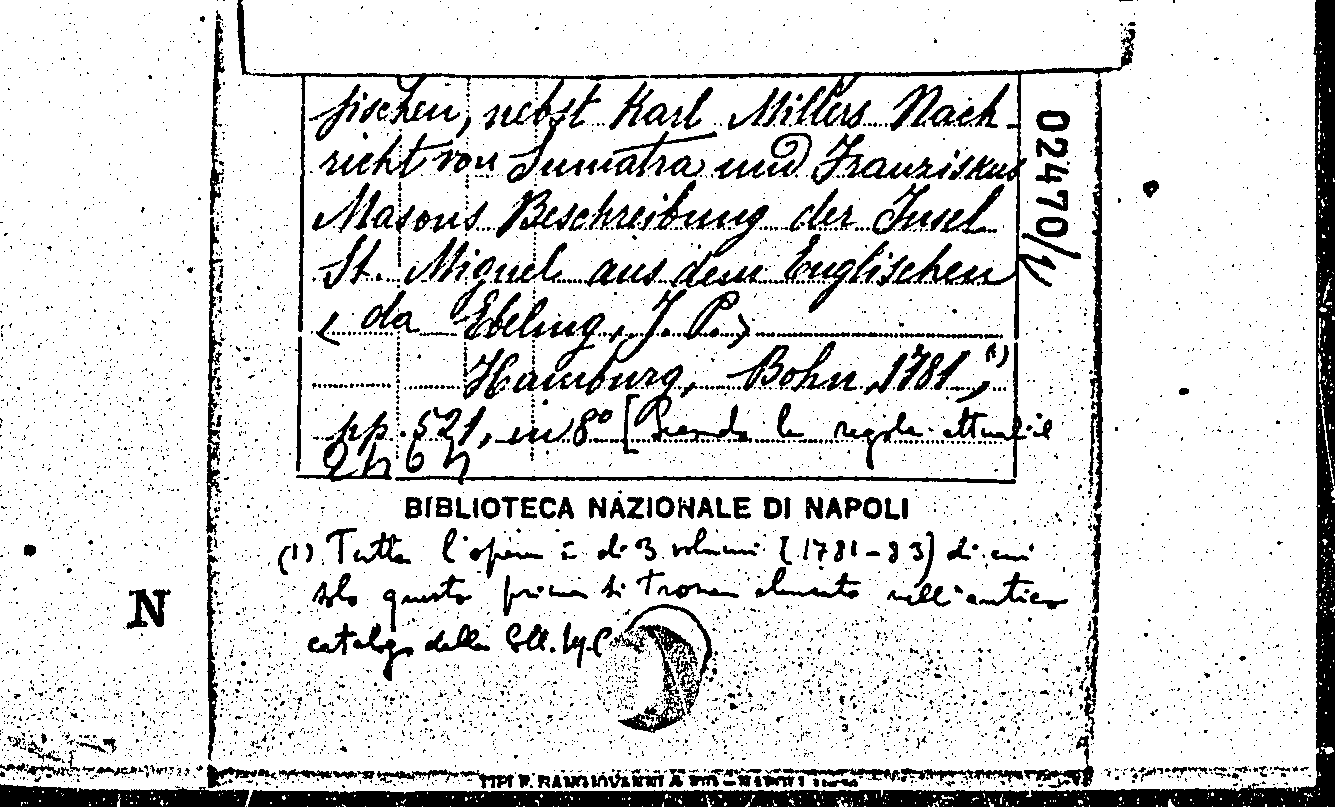 sischen, nebst Karl Millers Nach-
richt von Sumatra und Franziskus
Masons Beschreibung der Insel
St. Miguel aus dem Englischen
< da Ebeling, J. P. >
Hamburg, Bohn, 1781, (1)
pp. 521, in 8° [ la regola attuale
02470/1
BIBLIOTECA NAZIONALE DI NAPOLI
(1) Tutta l'opera è di 3 volumi [1781-83] di cui
solo questo primo si trova elencato nell'antico
catalogo della Coll.
N